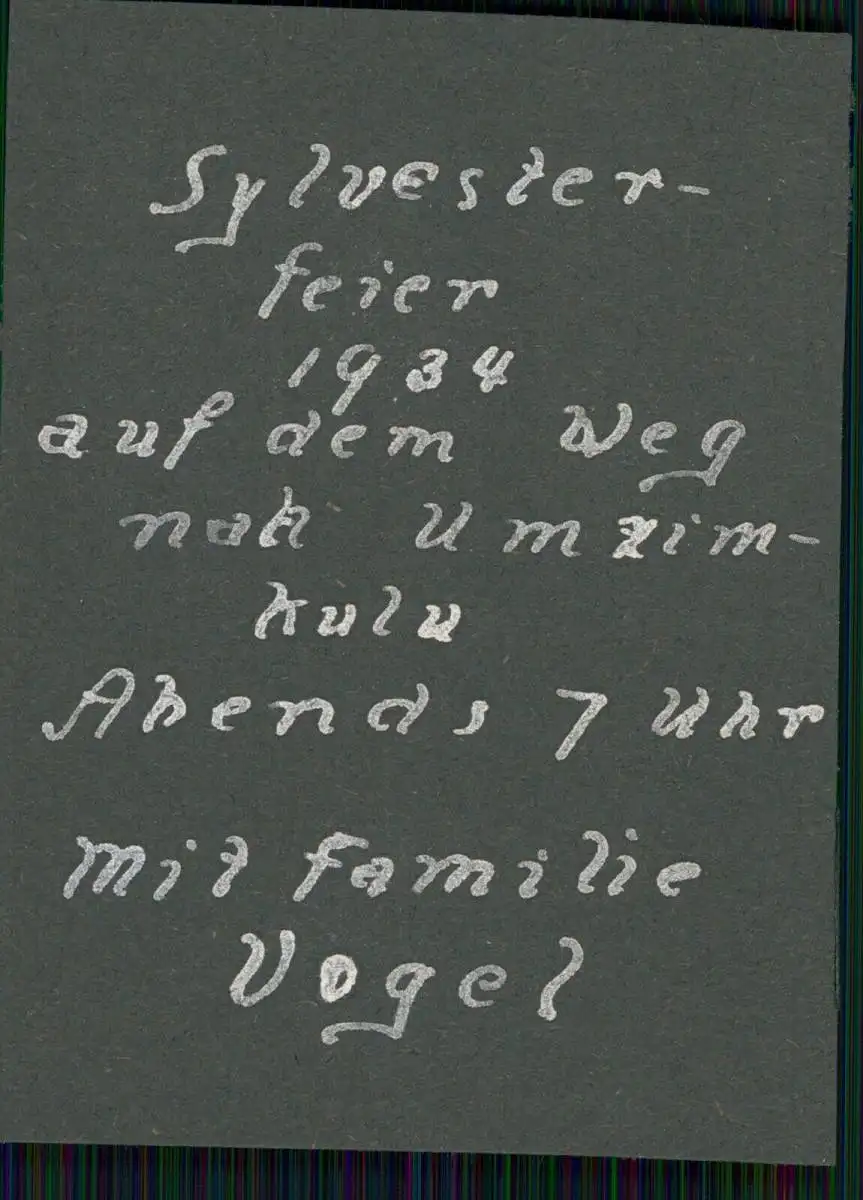 Sylvester-
feier
1934
auf dem Weg
nah Umzim-
kulu
Abends 7 Uhr
mit Familie
Vogel